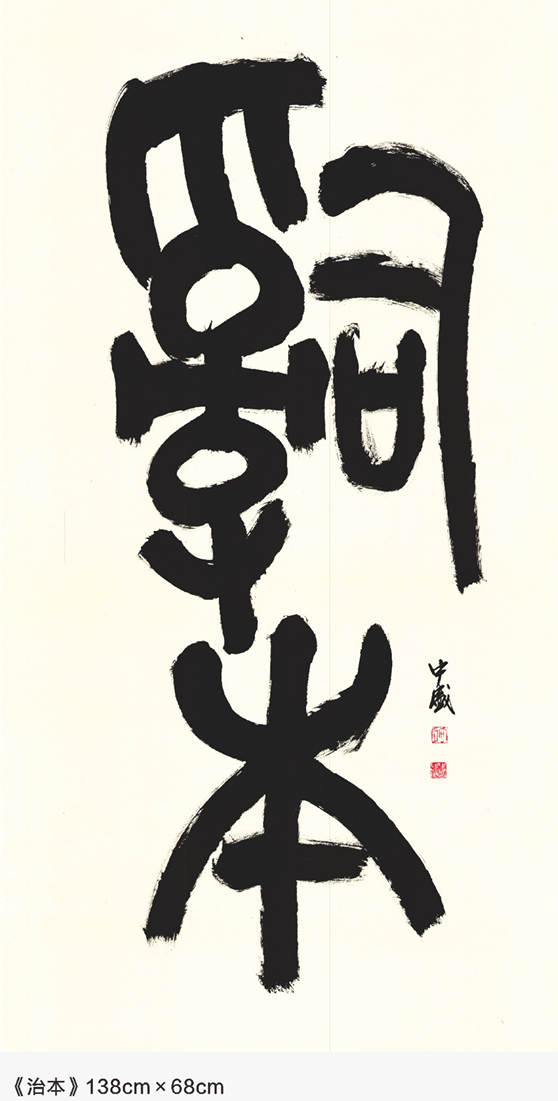 治本
中盛
《治本》138cm×68cm